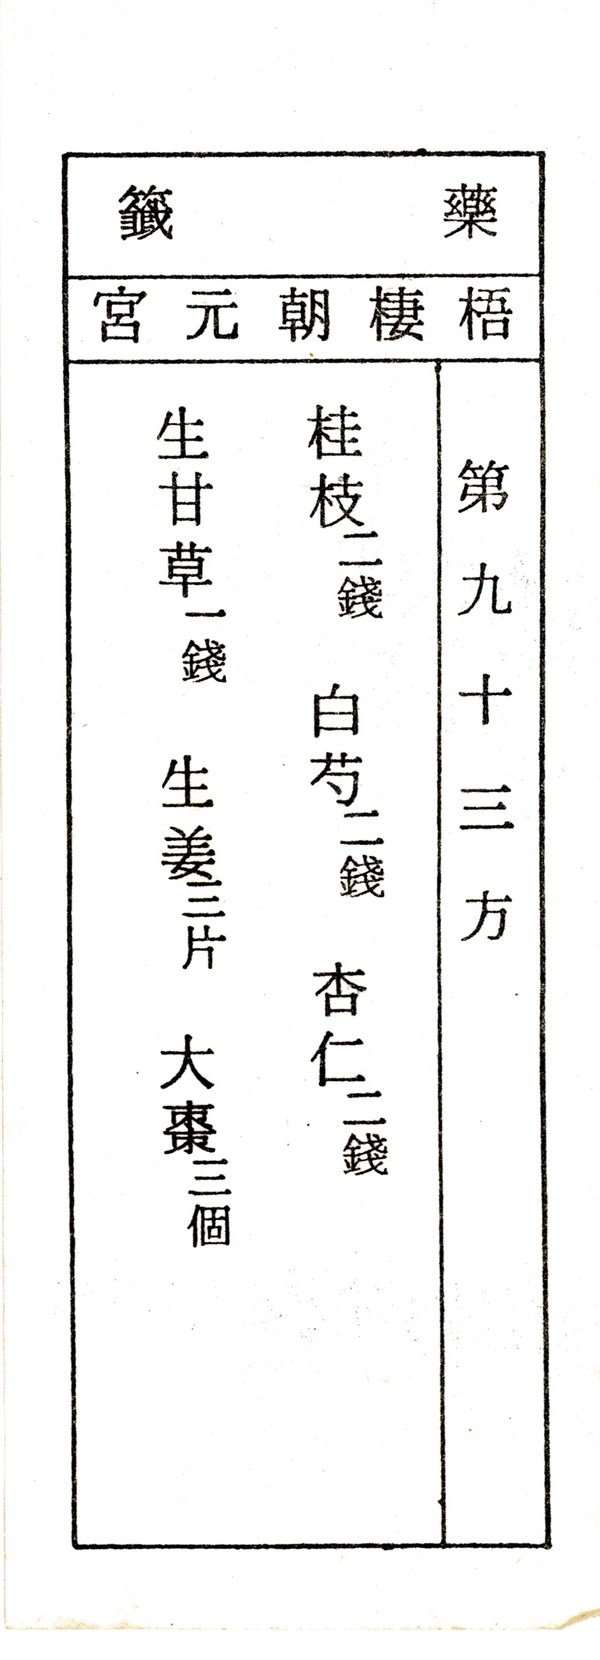 藥籤
梧棲朝元宮
第九十三方
桂枝二錢 白芍二錢 杏仁二錢
生甘草一錢 生姜三片 大棗三個